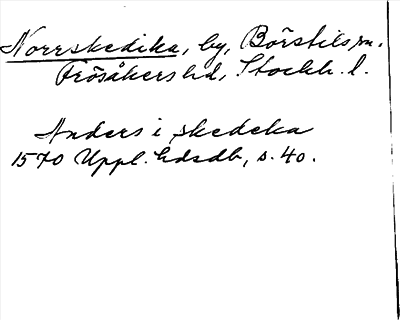 Norrskedika, by, Börstils sn.
Frösåkers hd, Stockh. l.
Anders i skedeka
1570 Uppl. hdsdb, s. 40.